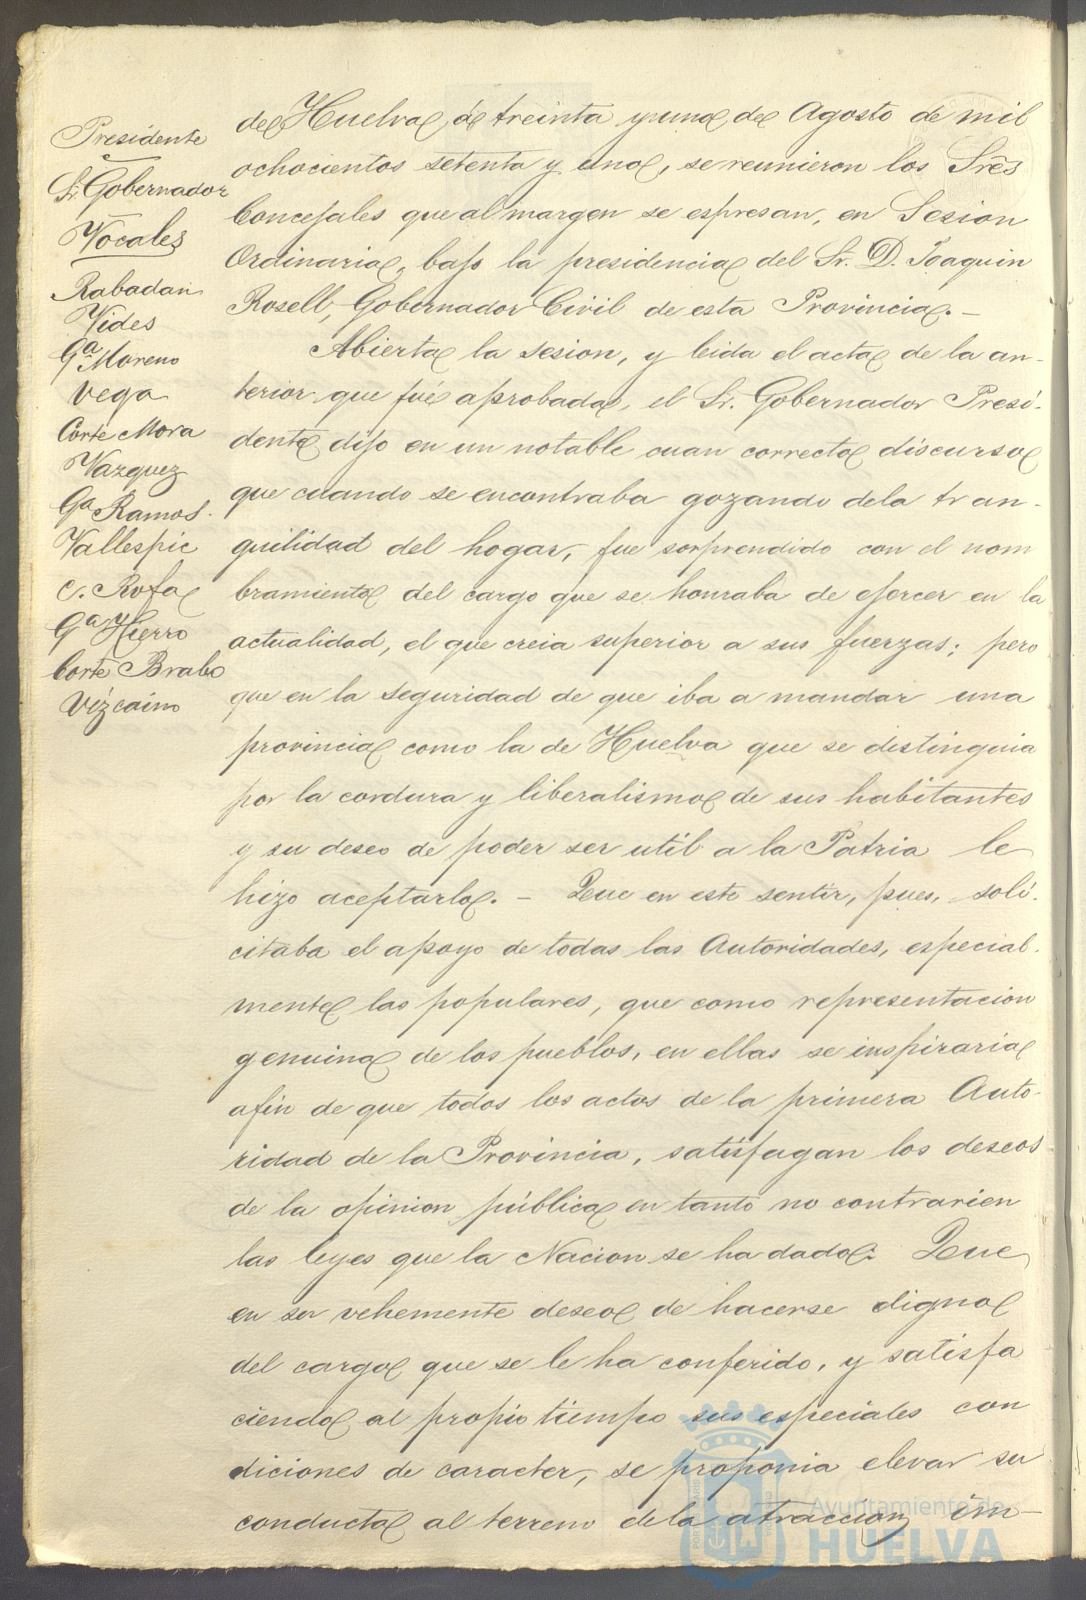 Presidente
Sr. Gobernador
Vocales
Rabadan
Vides
Gª Moreno
Vega
Corte Mora
Vazquez
Gª Ramos.
Vallespic
C. Rofa
Gª y Hierro
Corte Brabo
Vizcaino
de Huelva, á treinta y uno de Agosto de mil
ochocientos setenta y uno, se reunieron los Sres
Concejales que al margen se espresan, en Sesion
Ordinaria, bajo la presidencia del Sr. D. Joaquin
Rosell, Gobernador Civil de esta Provincia. -
Abierta la sesion, y leida el acta de la an-
terior que fué aprobada, el Sr. Gobernador Presi-
dente dijo en un notable cuan correcto discurso
que cuando se encontraba gozando dela tran-
quilidad del hogar, fue sorprendido con el nom
bramiento del cargo que se honraba de ejercer en la
actualidad, el que creia superior a sus fuerzas; pero
que en la seguridad de que iba a mandar una
provincia como la de Huelva que se distinguia
por la cordura y liberalismo de sus habitantes
y su deseo de poder ser util a la Patria le
hizo aceptarlo. - Que en este sentir, pues, soli-
citaba el apoyo de todas las Autoridades, especial-
mente las populares, que como representacion
genuina de los pueblos, en ellas se inspiraria
afin de que todos los actos de la primera Auto-
ridad de la Provincia, satisfagan los deseos
de la opinion pública en tanto no contrarien
las leyes que la Nacion se ha dado: Que
en su vehemente deseo de hacerse digno
del cargo que se le ha conferido, y satisfa
ciendo al propio tiempo sus especiales con
diciones de caracter, se proponia elevar su
conducta al terreno dela atraccion, im-
Ayuntamiento de
HUELVA